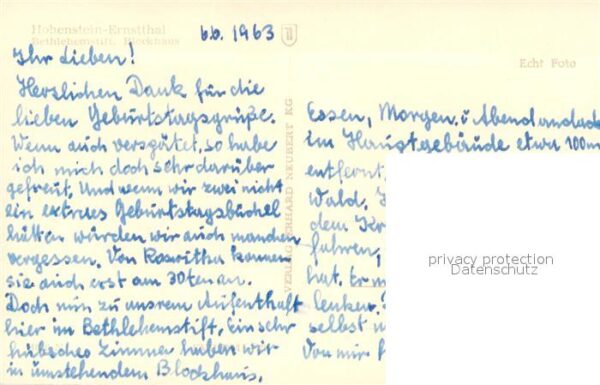 Hohenstein-Ernstthal
Bethlehemstift, Blockhaus
6.6. 1963
Echt Foto
Ihr Lieben!
Herzlichen Dank für die
lieben Geburtstagsgrüße.
Wenn auch verspätet, so habe
ich mich doch sehr darüber
gefreut. Und wenn wir zwei nicht
ein extraes Geburtstagsbüchel
hätten würden wir auch manchen
vergessen. Von Roswitha kommen
sie auch erst am 30ten an.
Doch nun zu unsrem Aufenthalt
hier im Bethlehemstift. Ein sehr
hübsches Zimmer haben wir
in umstehendem Blockhaus.
VERLAG ERHARD NEUBERT KG
Essen, Morgen. u Abendandach
im Hauptgebäude etwa 100m
entfernt.
Wald.
dem Kr
fahren,
hat. Er m
lenker.
selbst
Von mir
privacy protection
Datenschutz